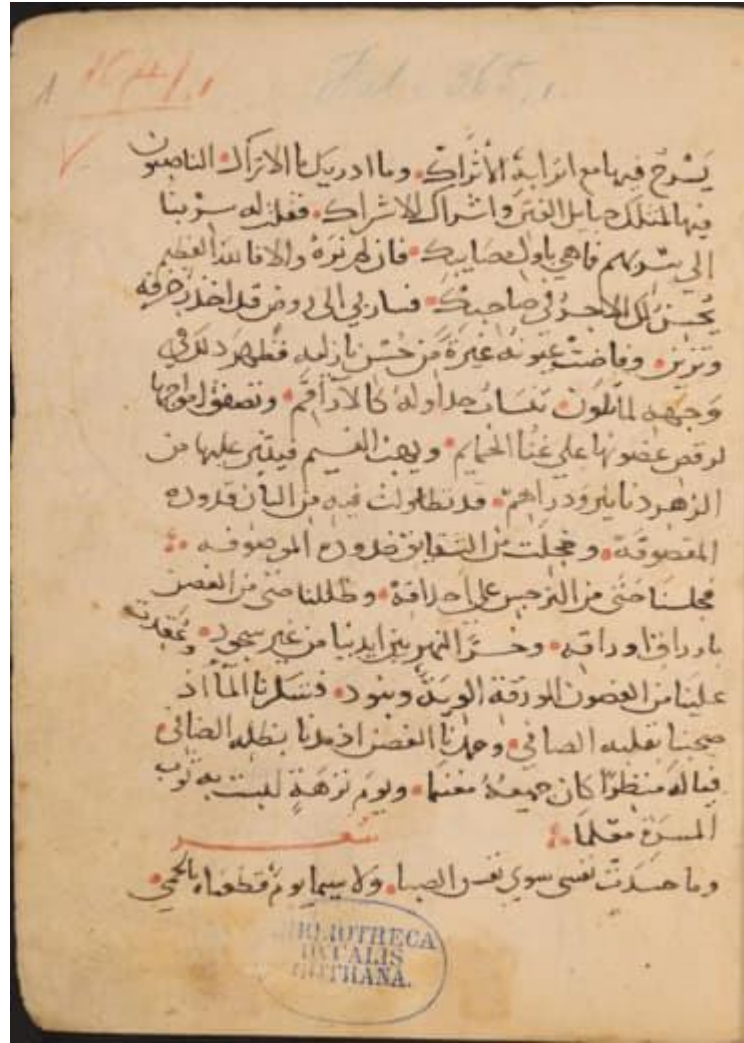 يَسْرَحُ فيها مع اترابه الأتراك • وما ادريك ما الاتراك • الناصبون
فيها لمثلك حبايل الفتن واشراك الاشراك • فقلت له سر بنا
الي فما هي باول مصايبك • فان والا فالله العظيم
يُحسن لك الاجر في صاحبك • فسار بي الى روض قد اخذ زخرفه
وتزين • وفاضت عيونه غيرة من حُسن نازليه فظهر ذلك في
وجهه لما تلون • تنساب جداوله كالاراقم • وتصفق امواجها
لرقص غصونها علي غنا الحمايم • ويهب النسيم فينثر عليها من
الزهر دنانير ودراهم • قد تطاولت فيه من البان قدوده
المقصوفة • وخجلت من الشقايق خدوده الموصوفه
فجلسنا حتى من النرجس علي احداقه • وظللنا حتى من الغصن
باوراق اوراقه • وخرّ النهر بين ايدينا من غير سجود • وعُقدت
علينا من الغصون المورقة الوية وبنود • فشكرنا الماء اذ
صحبنا بقلبه الصافي • وحمدنا الغصن اذ مدنا بظله الضافي
فياله منظرًا كان جميعهُ مغنما • ويوم نزهةٍ لبست به ثوب
المسرة معلما شعر
وما حسدت نفسى سوي نفس الصبا • ولا سيما يوم قطعناه بالحمي •
BIBLIOTHECA
DVCALIS
GOTHANA.